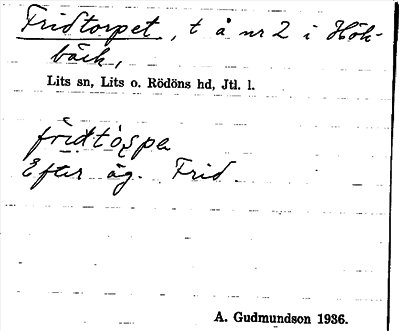 Fridtorpet, t å nr 2 i Hök-
bäck,
Lits sn, Lits o. Rödöns hd, Jtl. l.
Efter äg. Frid
A. Gudmundson 1936.